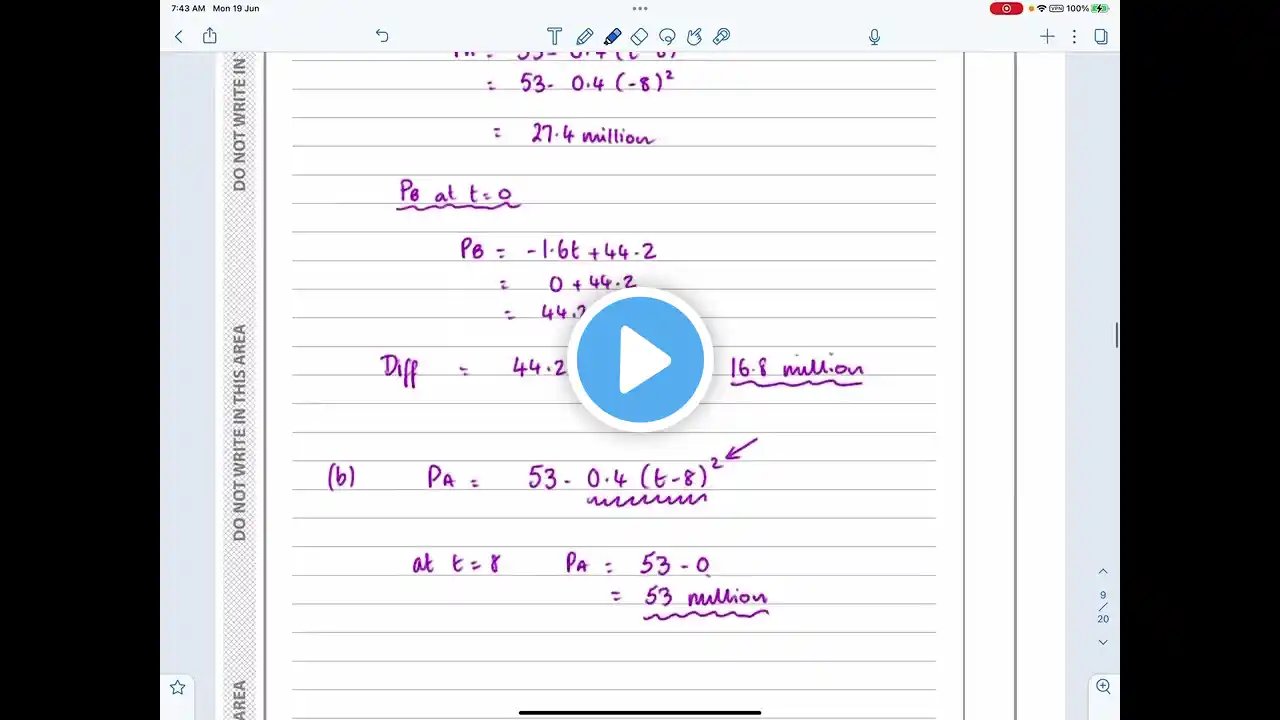 7:43 AM Mon 19 Jun
VPN 100%
DO NOT WRITE IN
= 53 - 0.4 (-8)²
= 27.4 million
PB at t=0
PB = -1.6t + 44.2
= 0 + 44.2
= 44.2
DO NOT WRITE IN THIS AREA
Diff = 44.2 16.8 million
(b) PA = 53 - 0.4 (t-8)²
at t=8 PA = 53 - 0
= 53 million
9
/
20
AREA